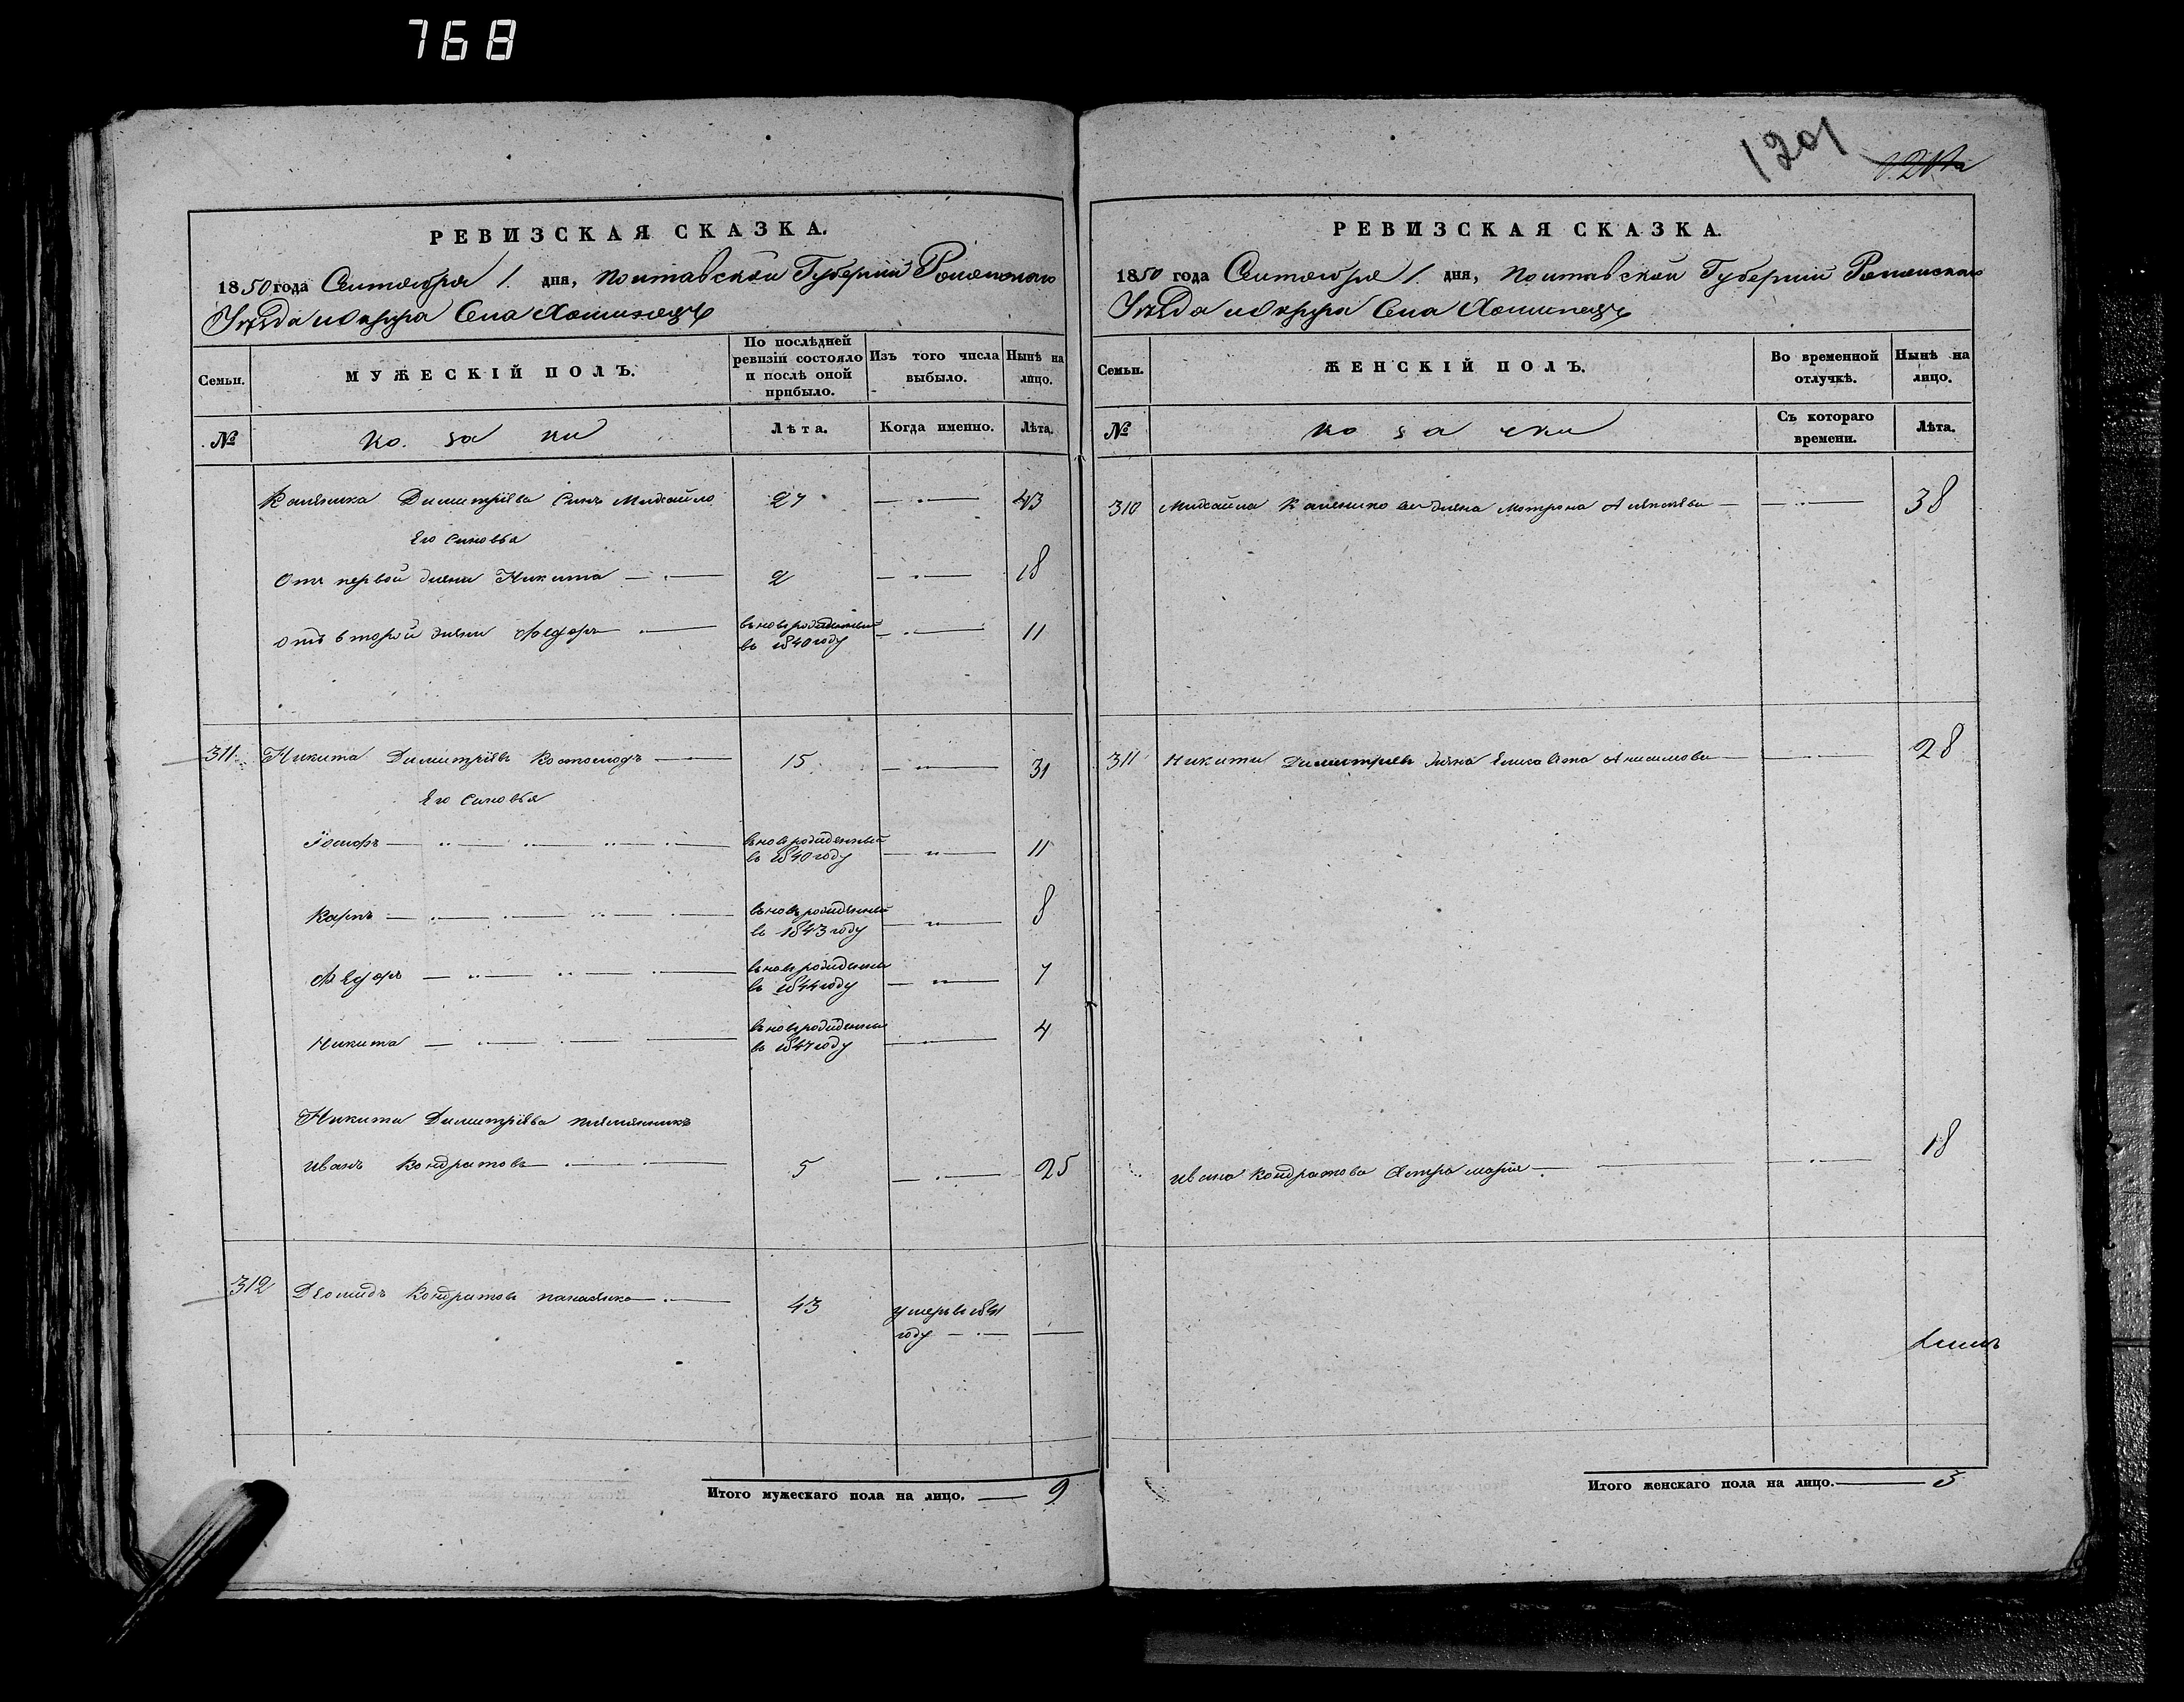 768
1201
РЕВИЗСКАЯ СКАЗКА.
1850 года Сентября 1. дня, Полтавской Губернии Роменского
Уезда и округа Села Хоминець
Семьи.
МУЖЕСКІЙ ПОЛЪ.
По послѣдней ревизіи состояло и послѣ оной прибыло.
Изъ того числа выбыло.
Нынѣ на лицо.
№
ко за ки
Лѣта.
Когда именно.
Лѣта.
Димитріева Сынъ Михайло 27 43
Его Сыновья
Отъ первой жены Никита 2 18
отъ второй жены Федоръ вновьрожденный 11
въ 1840 году
311. Никита Димитріевъ 15 31
Его Сыновья
Іосифъ вновьрожденный 11
въ 1840 году
Карпъ вновьрожденный 8
въ 1843 году
Федоръ вновьрожденный 7
въ 1844 году
Никита вновьрожденный 4
въ 1847 году
Никиты Димитріева племянникъ
Иванъ Кондратовъ 5 25
312 Кондратовъ 43 умеръ въ 1841
году
Итого мужескаго пола на лицо. 9
РЕВИЗСКАЯ СКАЗКА.
1850 года Сентября 1. дня, Полтавской Губерніи Роменского
Уезда и округа Села Хоминець
Семьи.
ЖЕНСКІЙ ПОЛЪ.
Во временной отлучкѣ.
Нынѣ на лицо.
№
ко за чки
Съ котораго времени.
Лѣта.
310 Михайла жена Мотрона 38
311 Никиты Димитріева жена Елисавета Анисимова 28
Ивана Кондратова сестра Марія 18
Итого женскаго пола на лицо. 3